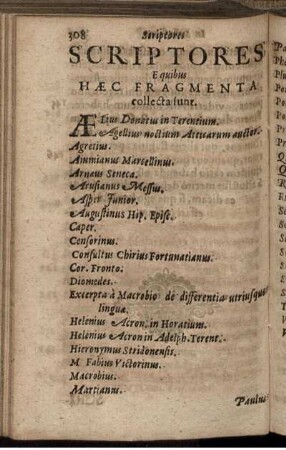 308 Scriptores
SCRIPTORES
E quibus
HÆC FRAGMENTA
collecta sunt.
ÆLius Donatus in Terentium.
Agellius noctium Atticarum auctor.
Agretius.
Ammianus Marcellinus.
Annæus Seneca.
Arusianus Messus.
Asper Junior.
Augustinus Hip. Episc.
Caper.
Censorinus.
Consultus Chirius Fortunatianus.
Cor. Fronto.
Diomedes.
Excerpta à Macrobio de differentia utriusque
linguæ.
Helenius Acron, in Horatium.
Helenius Acron in Adelph. Terent.
Hieronymus Stridonensis.
M Fabius Victorinus.
Macrobius.
Martianus.
Paulus